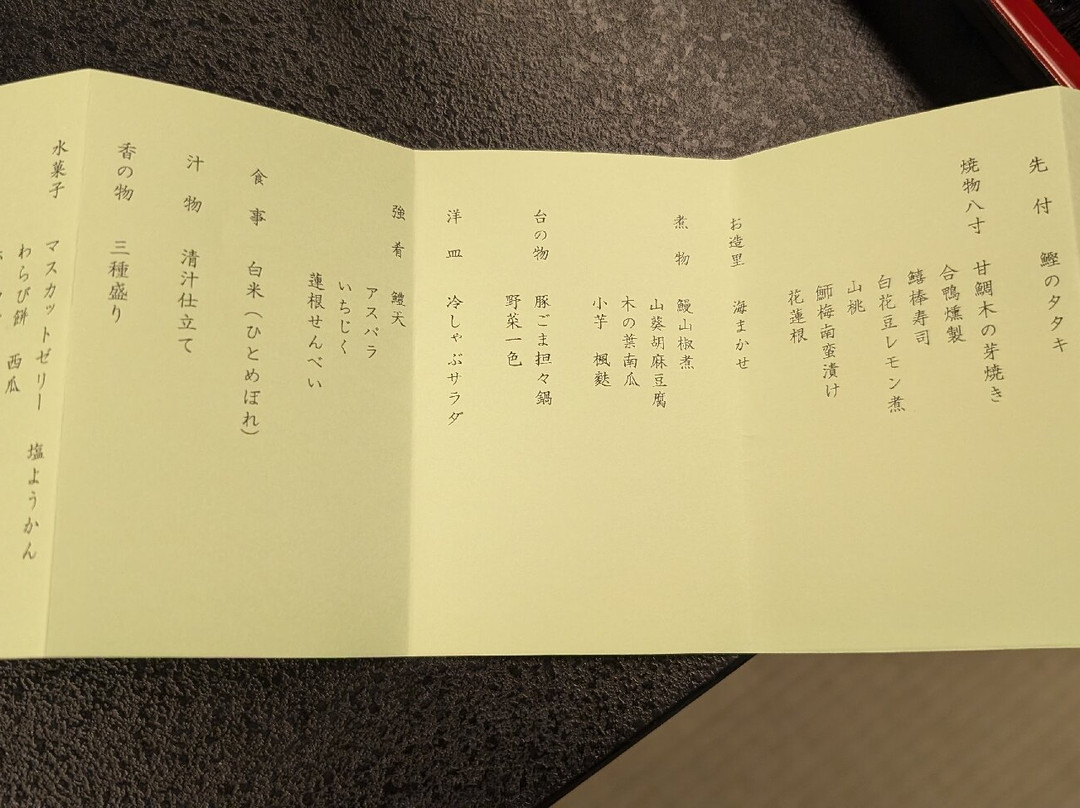 先付 鰹のタタキ
焼物八寸 甘鯛木の芽焼き
合鴨燻製
鱚棒寿司
白花豆レモン煮
山桃
鰤梅南蛮漬け
花蓮根
お造里 海まかせ
煮物 鰻山椒煮
山葵胡麻豆腐
木の葉南瓜
小芋 楓麩
台の物 豚ごま担々鍋
野菜一色
洋皿 冷しゃぶサラダ
強肴 鱧天
アスパラ
いちじく
蓮根せんべい
食事 白米(ひとめぼれ)
汁物 清汁仕立て
香の物 三種盛り
水菓子 マスカットゼリー 塩ようかん
わらび餅 西瓜